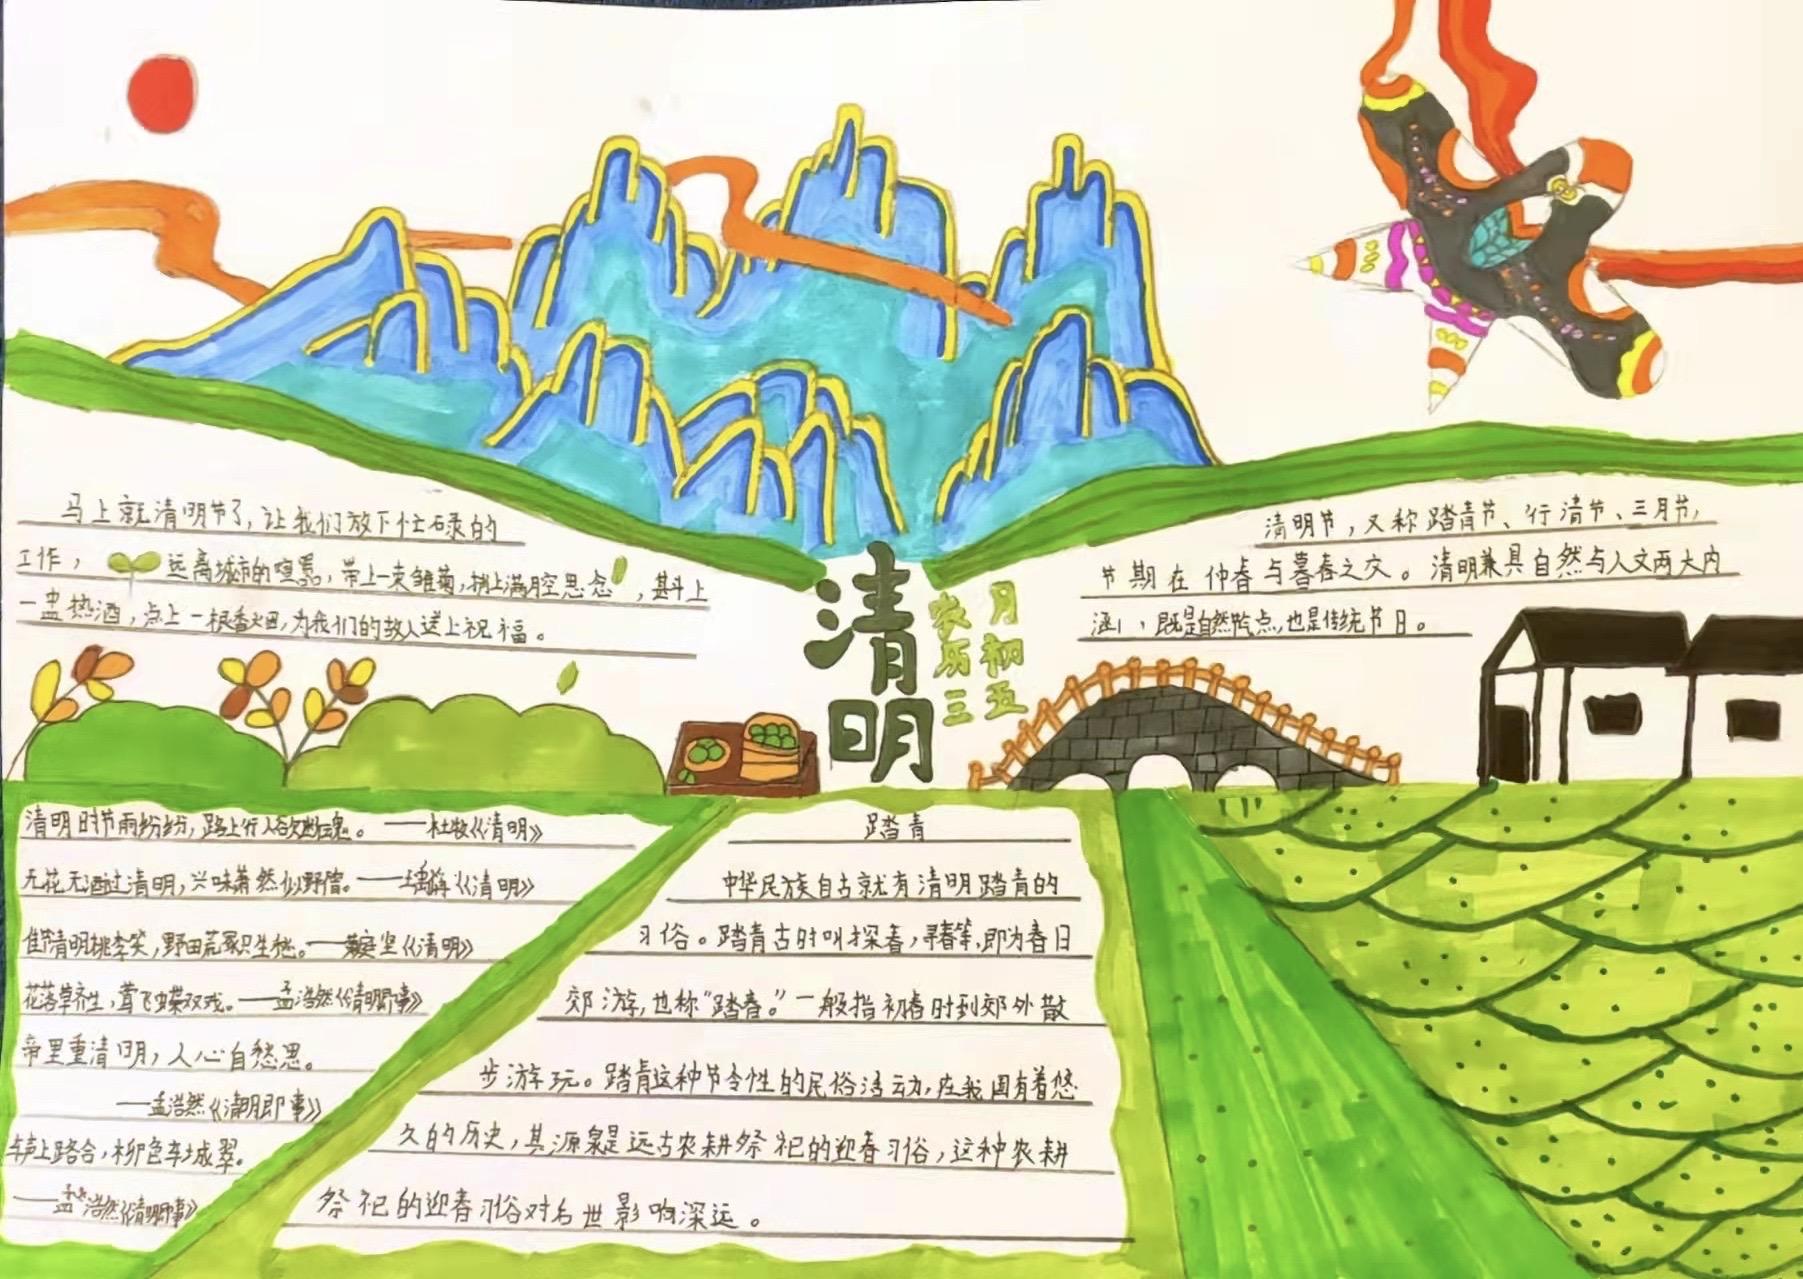 马上就清明节了，让我们放下忙碌的
工作，远离城市的喧嚣，带上一束雏菊，捎上满腔思念，斟上
一盅热酒，点上一根香烟，为我们的故人送上祝福。
清明节，又称踏青节、行清节、三月节，
节期在仲春与暮春之交。清明兼具自然与人文两大内
涵，既是自然节气点，也是传统节日。
清明
农历三
月初五
清明时节雨纷纷，路上行人欲断魂。——杜牧《清明》
无花无酒过清明，兴味萧然似野僧。——《清明》
佳节清明桃李笑，野田荒冢只生愁。——黄庭坚《清明》
花落草齐生，莺飞蝶双戏。——孟浩然《清明即事》
帝里重清明，人心自愁思。
——孟浩然《清明即事》
车声上路合，柳色车城翠。
——孟浩然《清明即事》
踏青
中华民族自古就有清明踏青的
习俗。踏青古时叫探春，寻春等，即为春日
郊游，也称“踏春。”一般指初春时到郊外散
步游玩。踏青这种节令性的民俗活动，在我国有着悠
久的历史，其源泉是远古农耕祭祀的迎春习俗，这种农耕
祭祀的迎春习俗对后世影响深远。